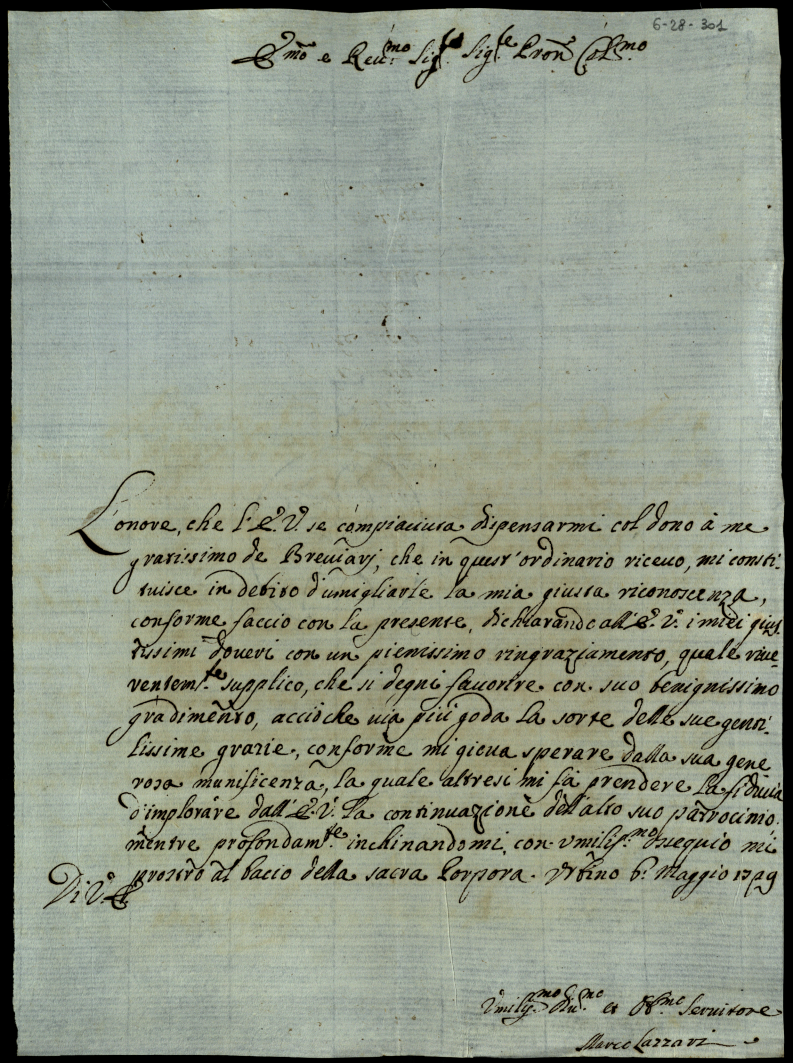 6-28-301
E.mo e Reu.mo Sig.re Sig.re Pron Col.mo
L'onore, che l'E. V. se compiaciuta dispensarmi col dono à me
gratissimo de Breuiarj, che in quest'ordinario riceuo, mi consti-
tuisce in debito d'umigliarle la mia giusta riconoscenza,
conforme faccio con la presente, dichiarando all'E. V. i miei gius
tissimi doueri con un pienissimo ringraziamento, quale riue-
rentem.te supplico, che si degni fauorire con suo benignissimo
gradimento, acciòche uia più goda la sorte delle sue genti-
lissime grazie, conforme mi gioua sperare dalla sua gene
rosa munificenza, la quale altresi mi fà prendere la fiducia
d'implorare dall'E. V. la continuazione dell'alto suo patrocinio
mentre profondam.te inchinandomi, con umiliss.mo ossequio mi
prostro al bacio della sacra Porpora. Urbino 6. Maggio
Di V. E.
Umiliss.mo Diu.mo et Obb.mo Seruitore
Marco Lazzari